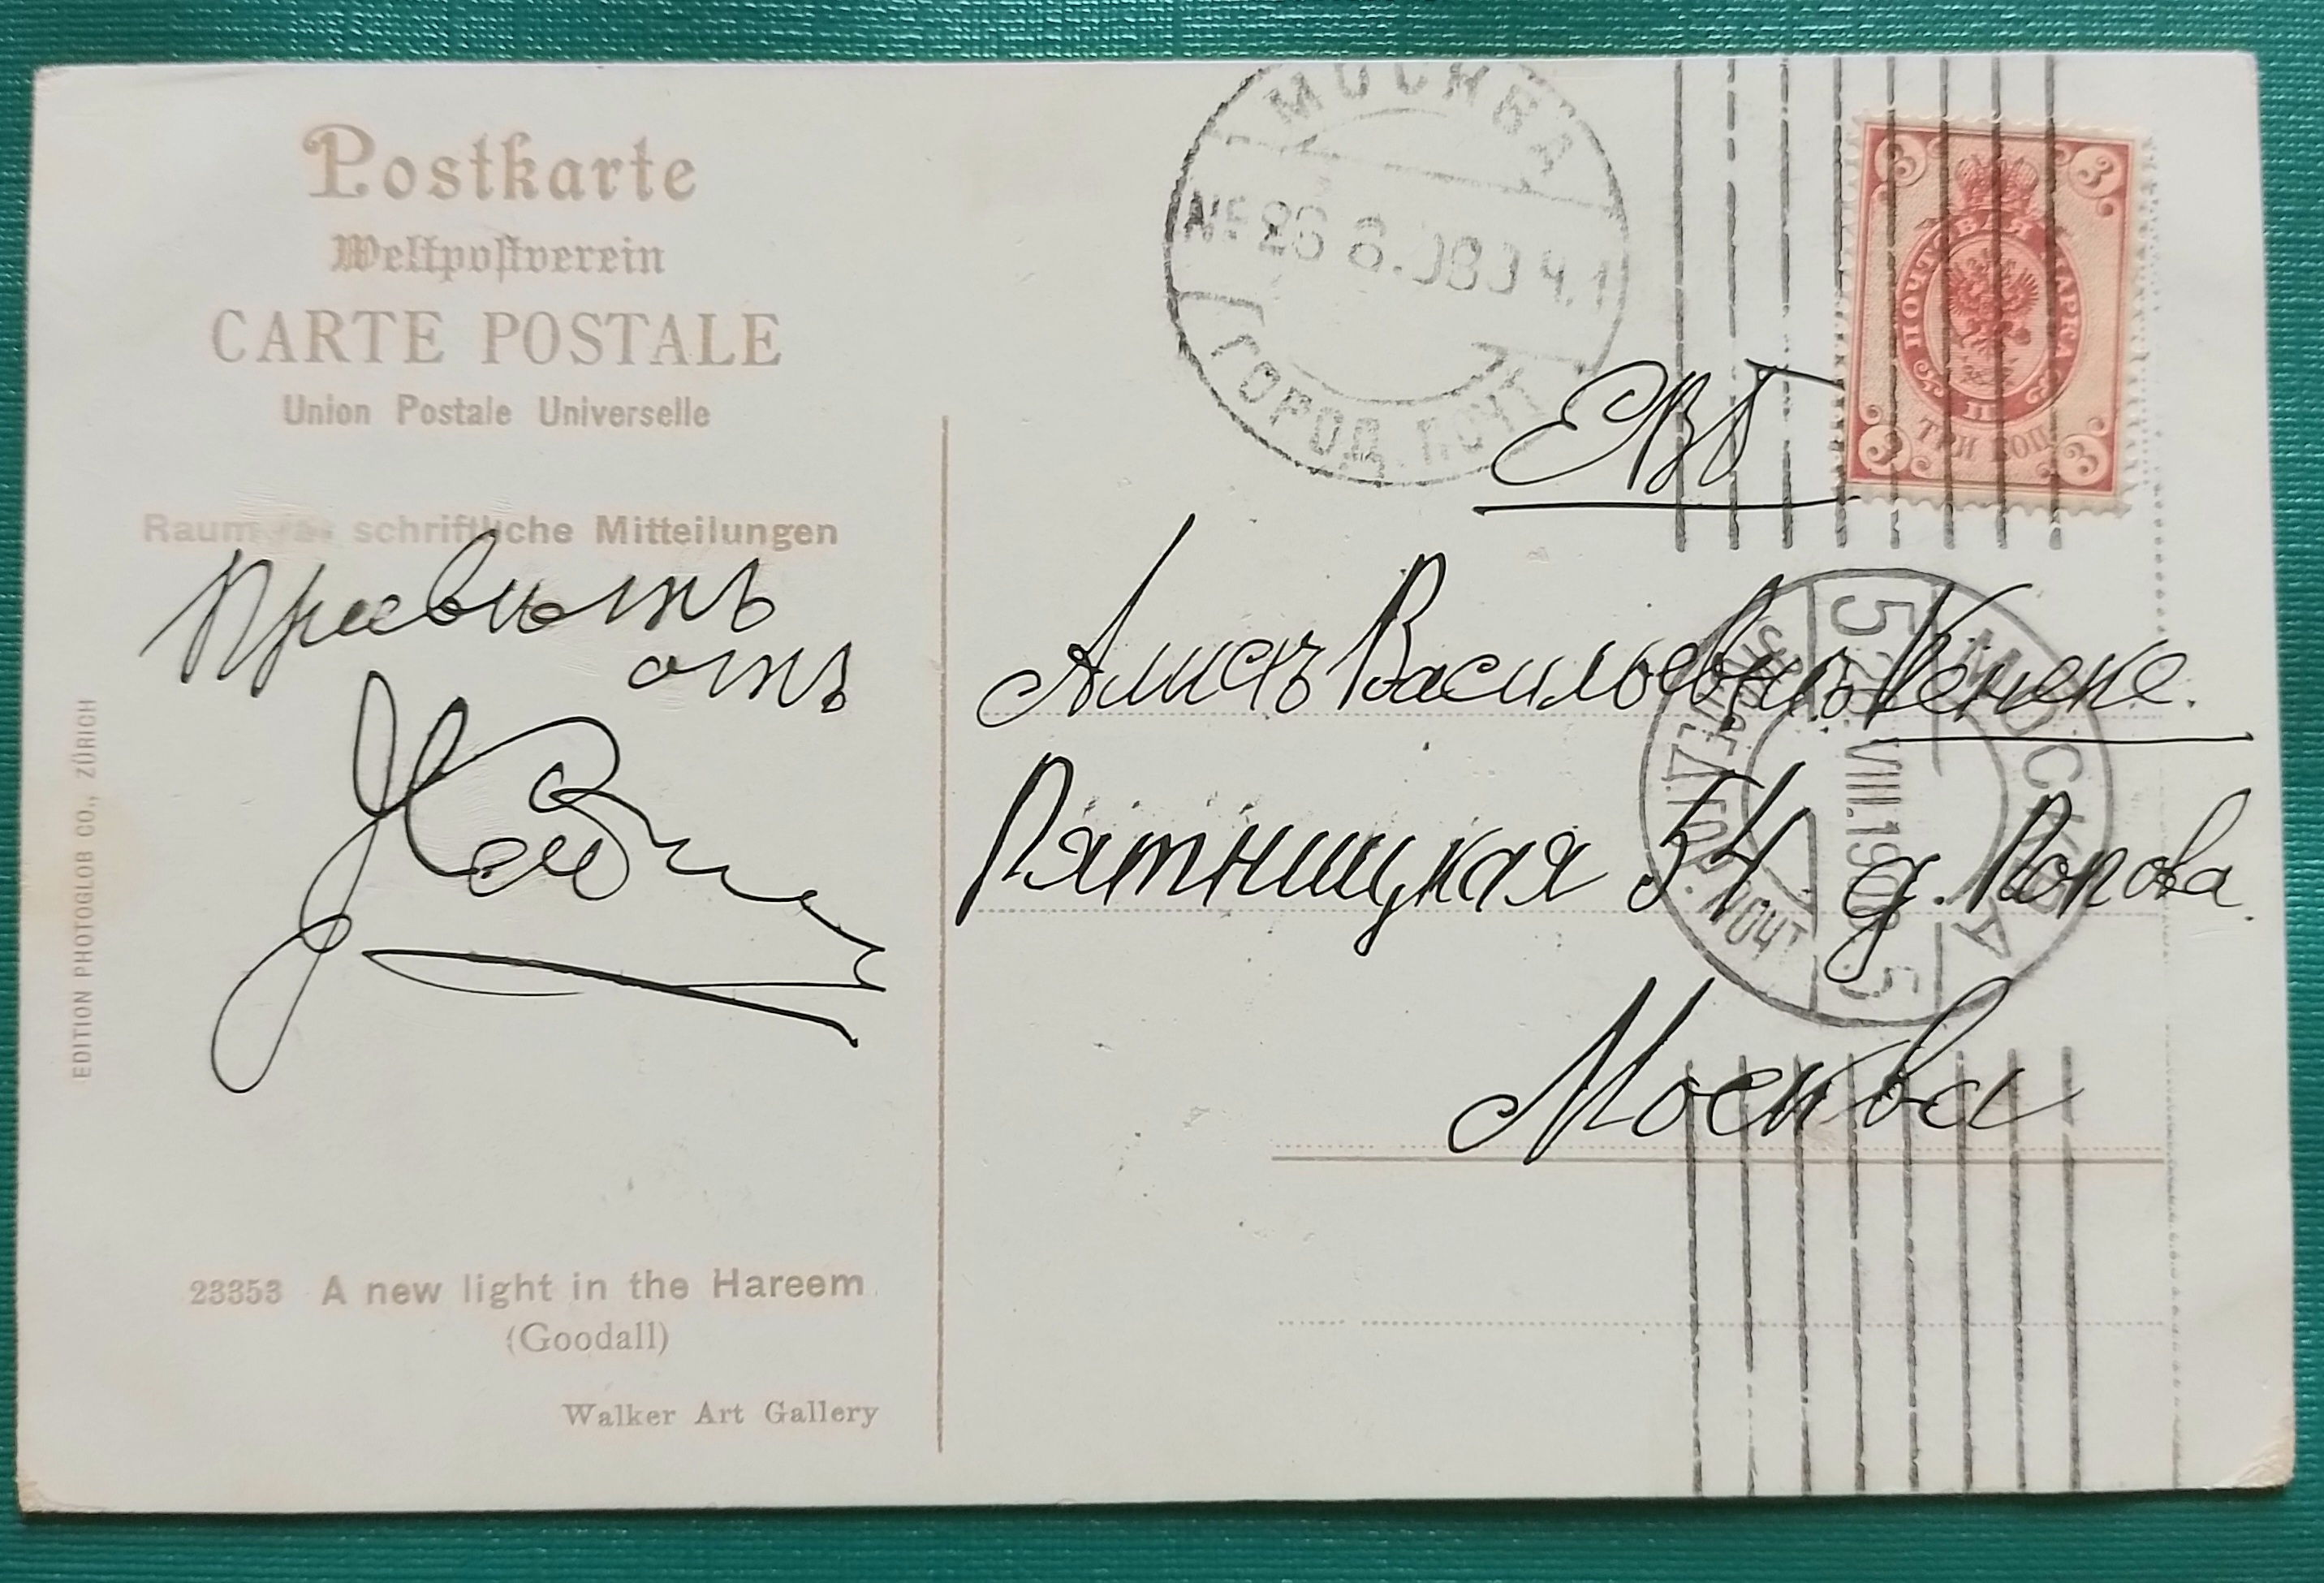 Postkarte
Weltpostverein
CARTE POSTALE
Union Postale Universelle
Raum für schriftliche Mitteilungen
Привѣтъ
отъ
EDITION PHOTOGLOB CO., ZÜRICH
23353 A new light in the Hareem
(Goodall)
Walker Art Gallery
МОСКВА
26 8.08
ГОРОД. ПОЧТ
ПОЧТОВАЯ МАРКА
3 3
ТРИ КОП
3 3
ЕВБ
Алисѣ Васильевнѣ Кенеке.
Пятницкая 54 д. Попова.
Москва
МОСКВА
5 VIII.1908 5
ГОР. ПОЧТ